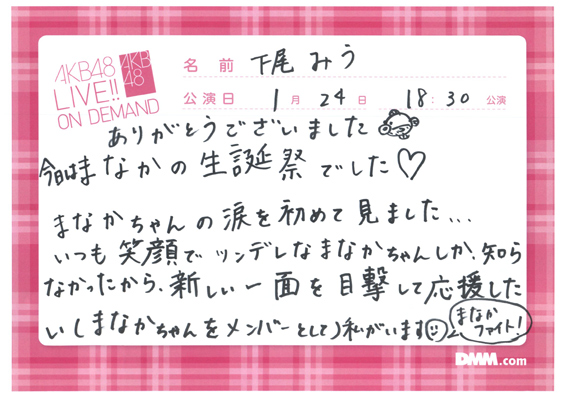 AKB48
LIVE!!
ON DEMAND
AKB
48
名前 下尾みう
公演日 1月24日 18:30公演
ありがとうございました
今日はまなかの生誕祭でした♡
まなかちゃんの涙を初めて見ました...
いつも笑顔でツンデレなまなかちゃんしか、知ら
なかったから、新しい一面を目撃して応援した
い(まなかちゃんをメンバーとして)私がいます
まなか
ファイト!
DMM.com